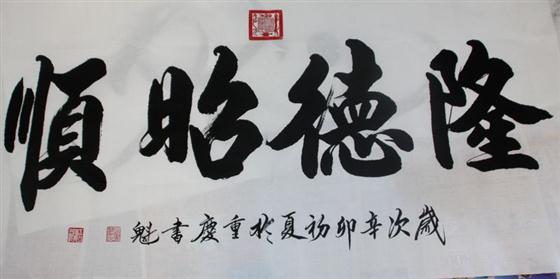 隆德昭順
歲次辛卯初夏於重慶書魁